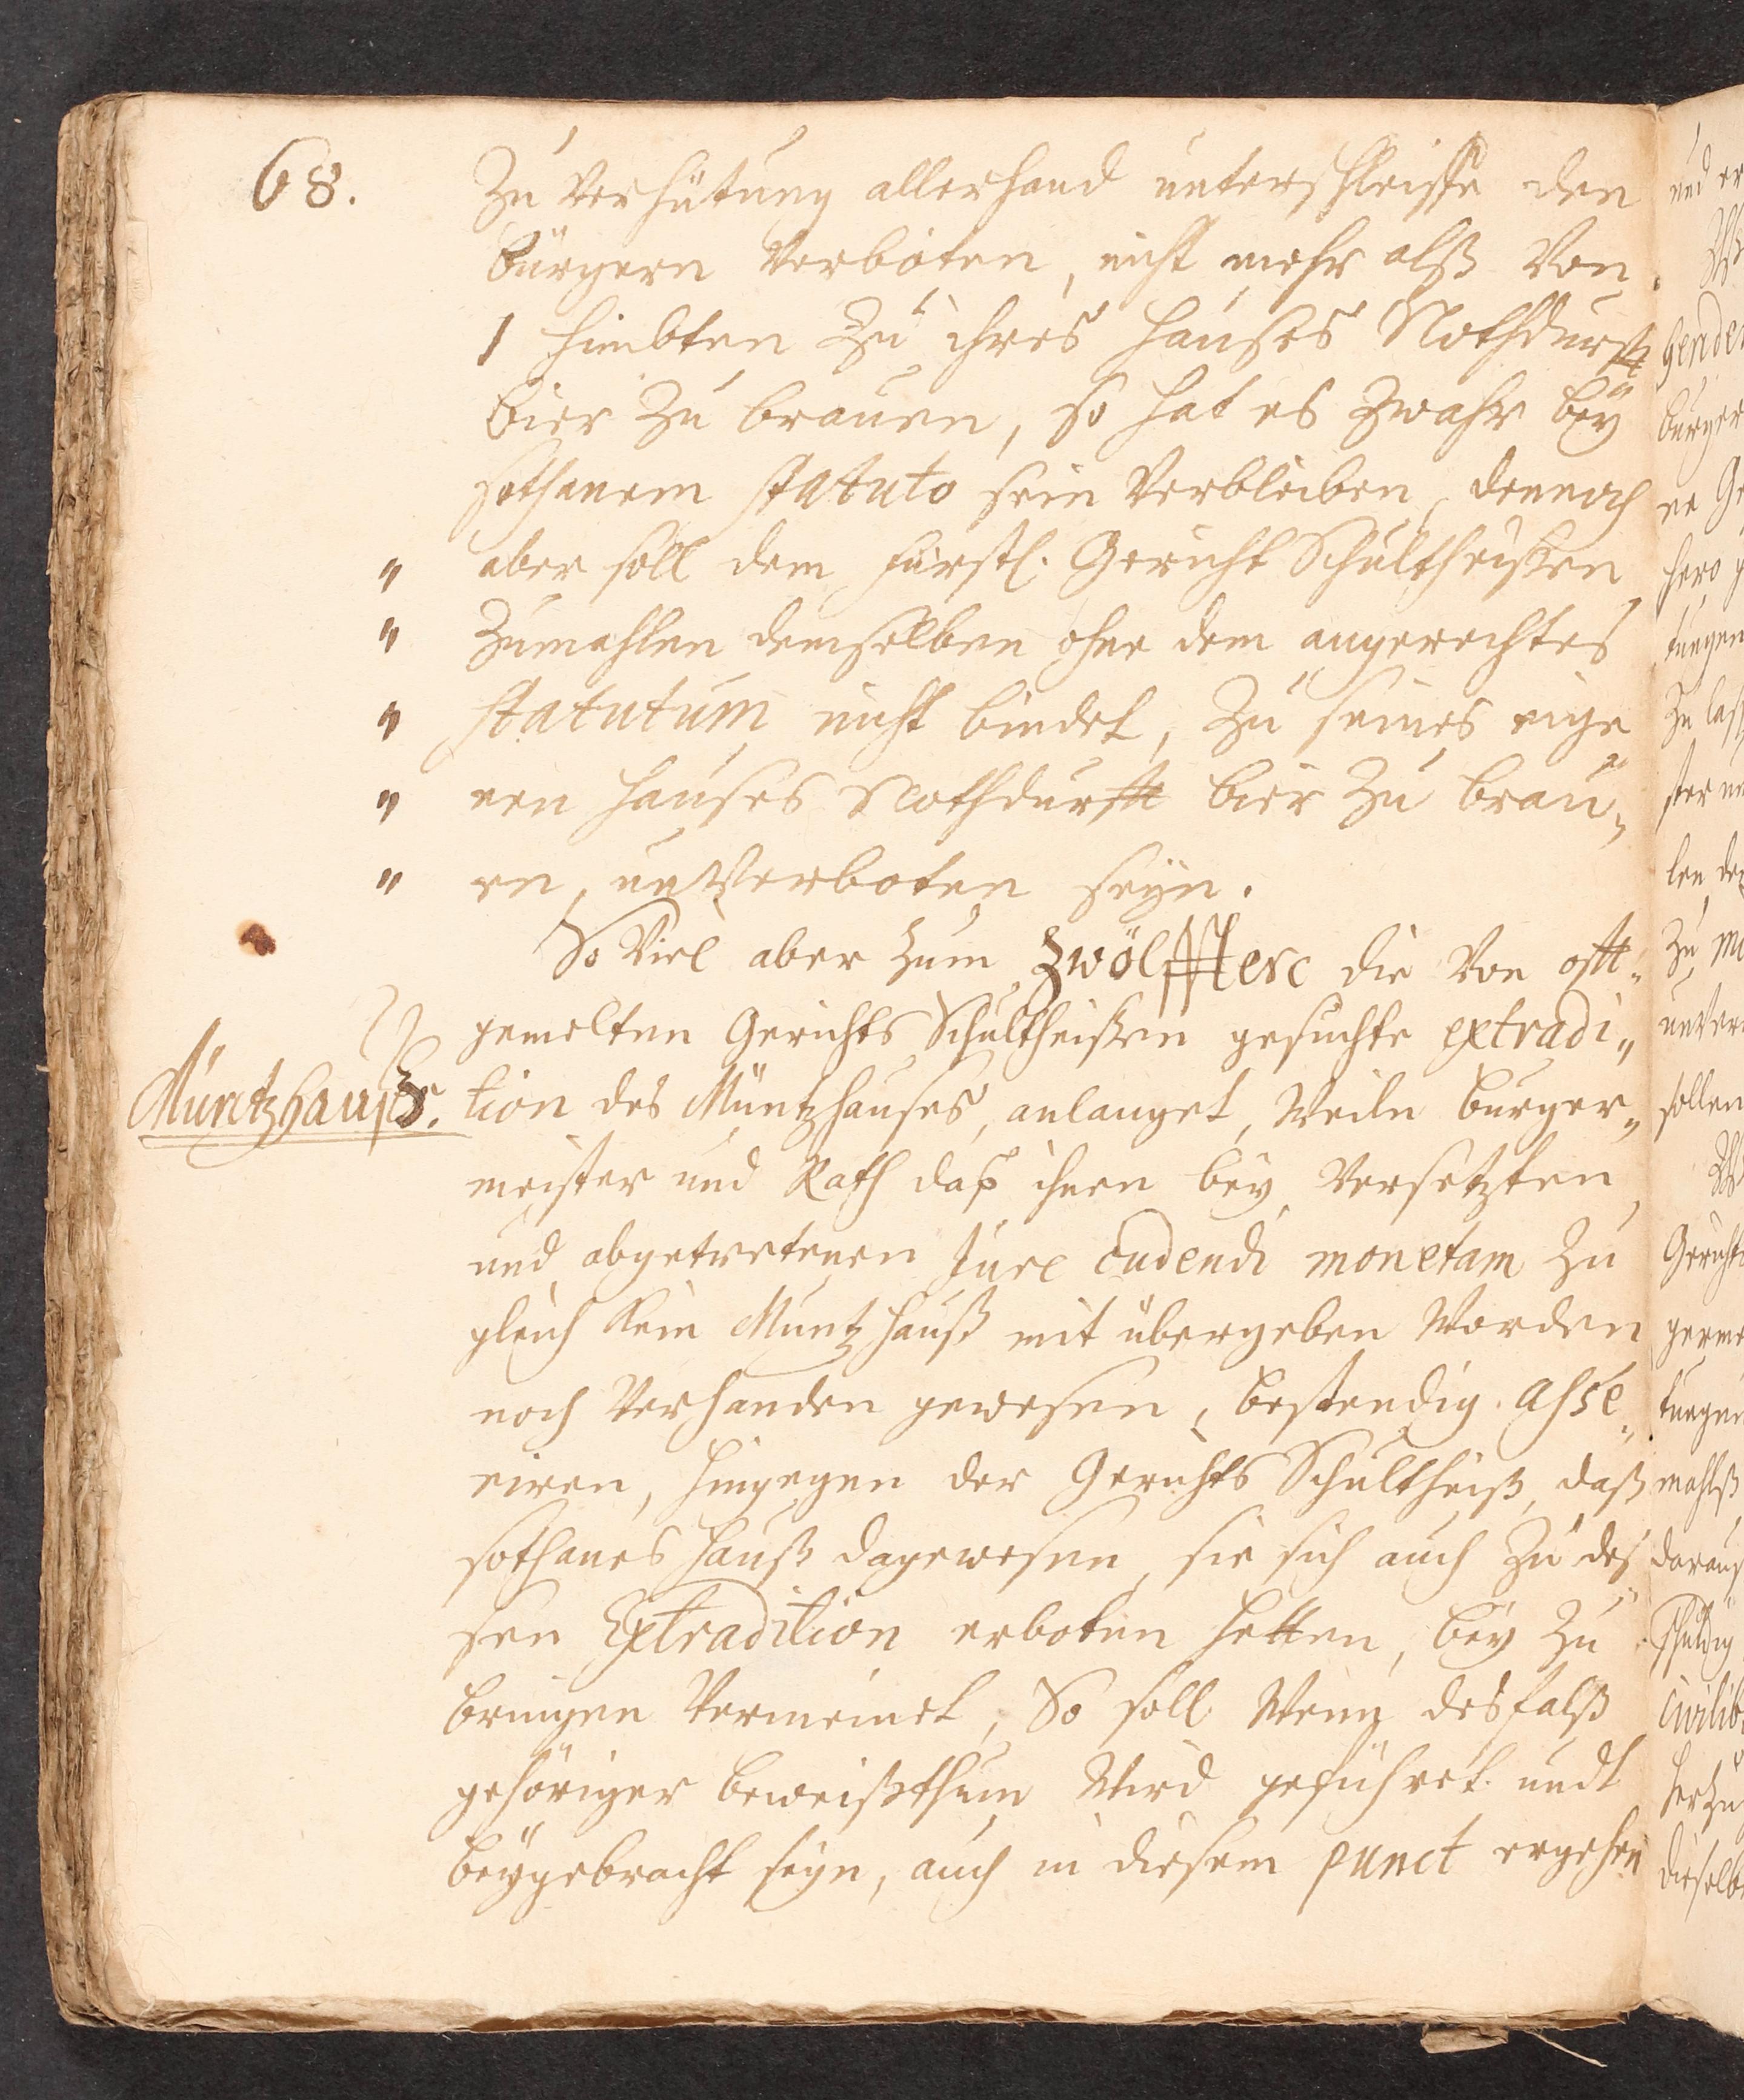 68.
Zu Verhütung allerhand unterschleiffe den
bürgern Verboten, nicht mehr alß Von
1 himbten Zu ihres Hauses Nothdurfft
bier Zu brauen, so hat es Zwahr bey
sothanem statuto sein Verbleiben, dennoch
" aber soll dem fürstl. Gericht Schultheißen
" Zumahlen demselben ohne dem angerechtes
" statutum nicht bindet, Zu seines eige
" nen Hauses Nothdurfft bier Zu brau„
" en, unVerboten seyn.
So Viel aber zum Zwölffterc die Von offt„
gemelten Gerichts Schultheißen gesuchte extradi„
Müntzhauß.
tion des Müntzhauses, anlanget, Weiln burger„
meister und Rath daß ihnen bey Versetzten
und abgetretenen Jure cudendi monetam Zu
gleich Kein Muntz hauß mit übergeben Worden
noch Verhanden gewesen, bestendig. Asse„
riren, hingegen der Gerichts Schultheiß, daß
sothanes hauß dagewesen, sie sich auch Zu des„
sen Extradition erboten hetten, bey Zu
bringen Vermeinet, So soll Wenn desfalß
gehöriger beweißthum Wird geführet. undt
beygebracht seyn, auch in diesem punct ergehen